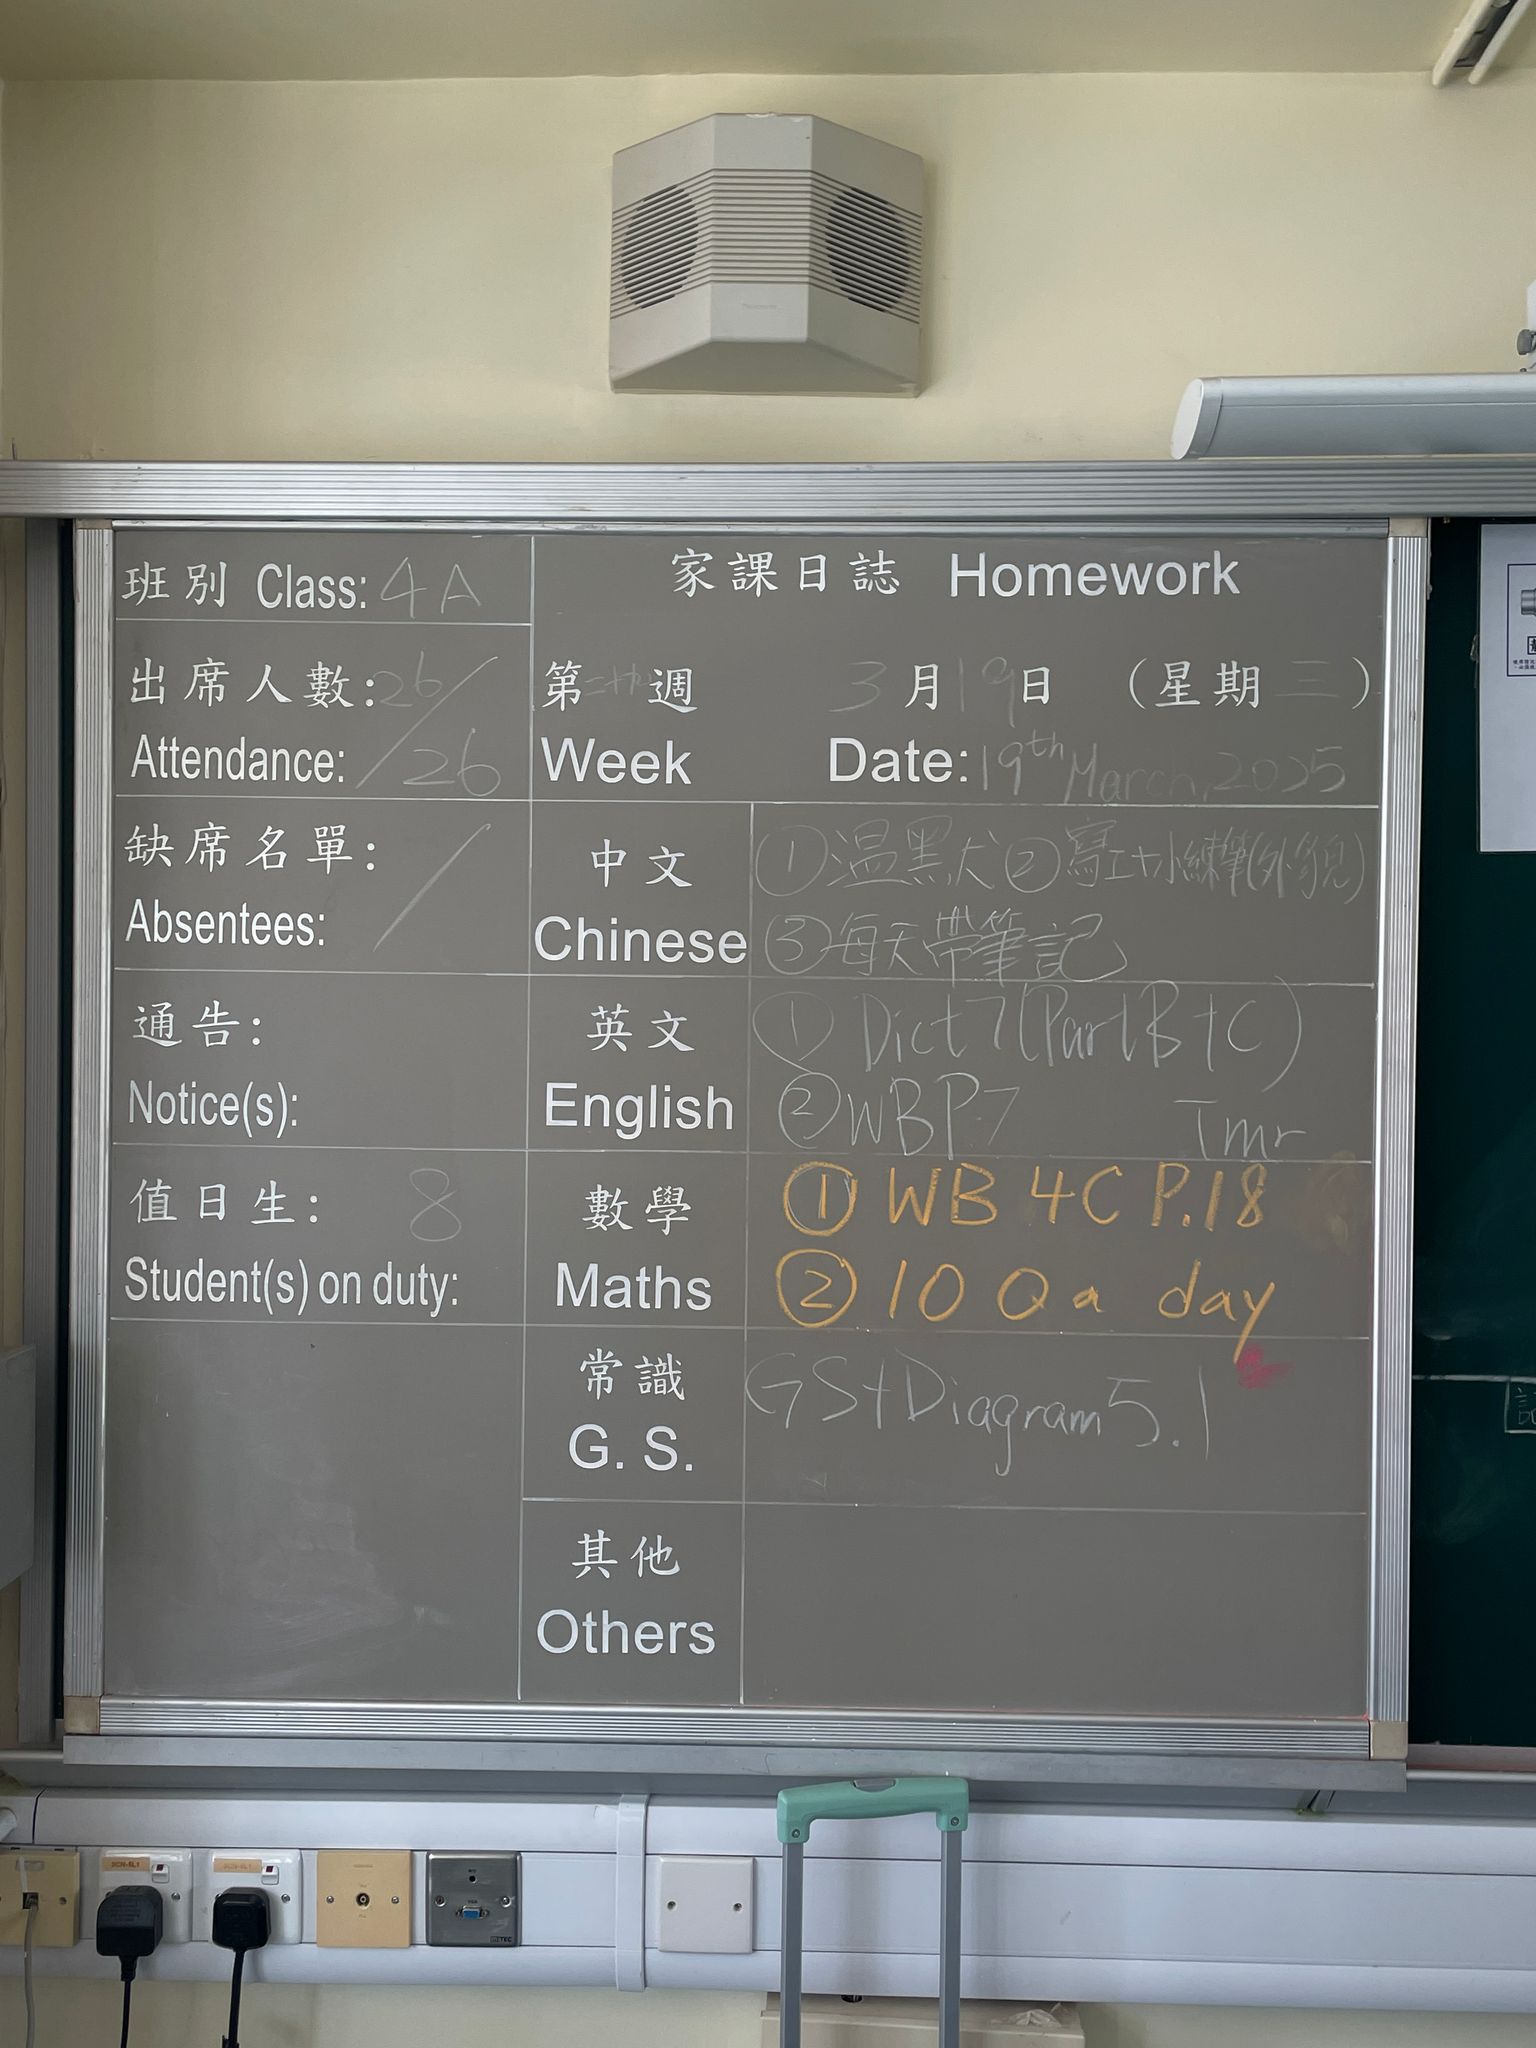 班別 Class: 4A
出席人數: 26/
Attendance: 26
缺席名單: /
Absentees:
通告:
Notice(s):
值日生: 8
Student(s) on duty:
家課日誌 Homework
第二十週 3月19日 (星期三)
Week Date: 19th March, 2025
中文 ①温黑犬 ②寫小練筆(外貌)
Chinese ③每天帶筆記
英文 ① Dict 7 (Part B+C)
English ② WB P.7 Tmr
數學 ① WB 4C P.18
Maths ② 10 Q a day
常識 GS+Diagram 5.1
G. S.
其他
Others